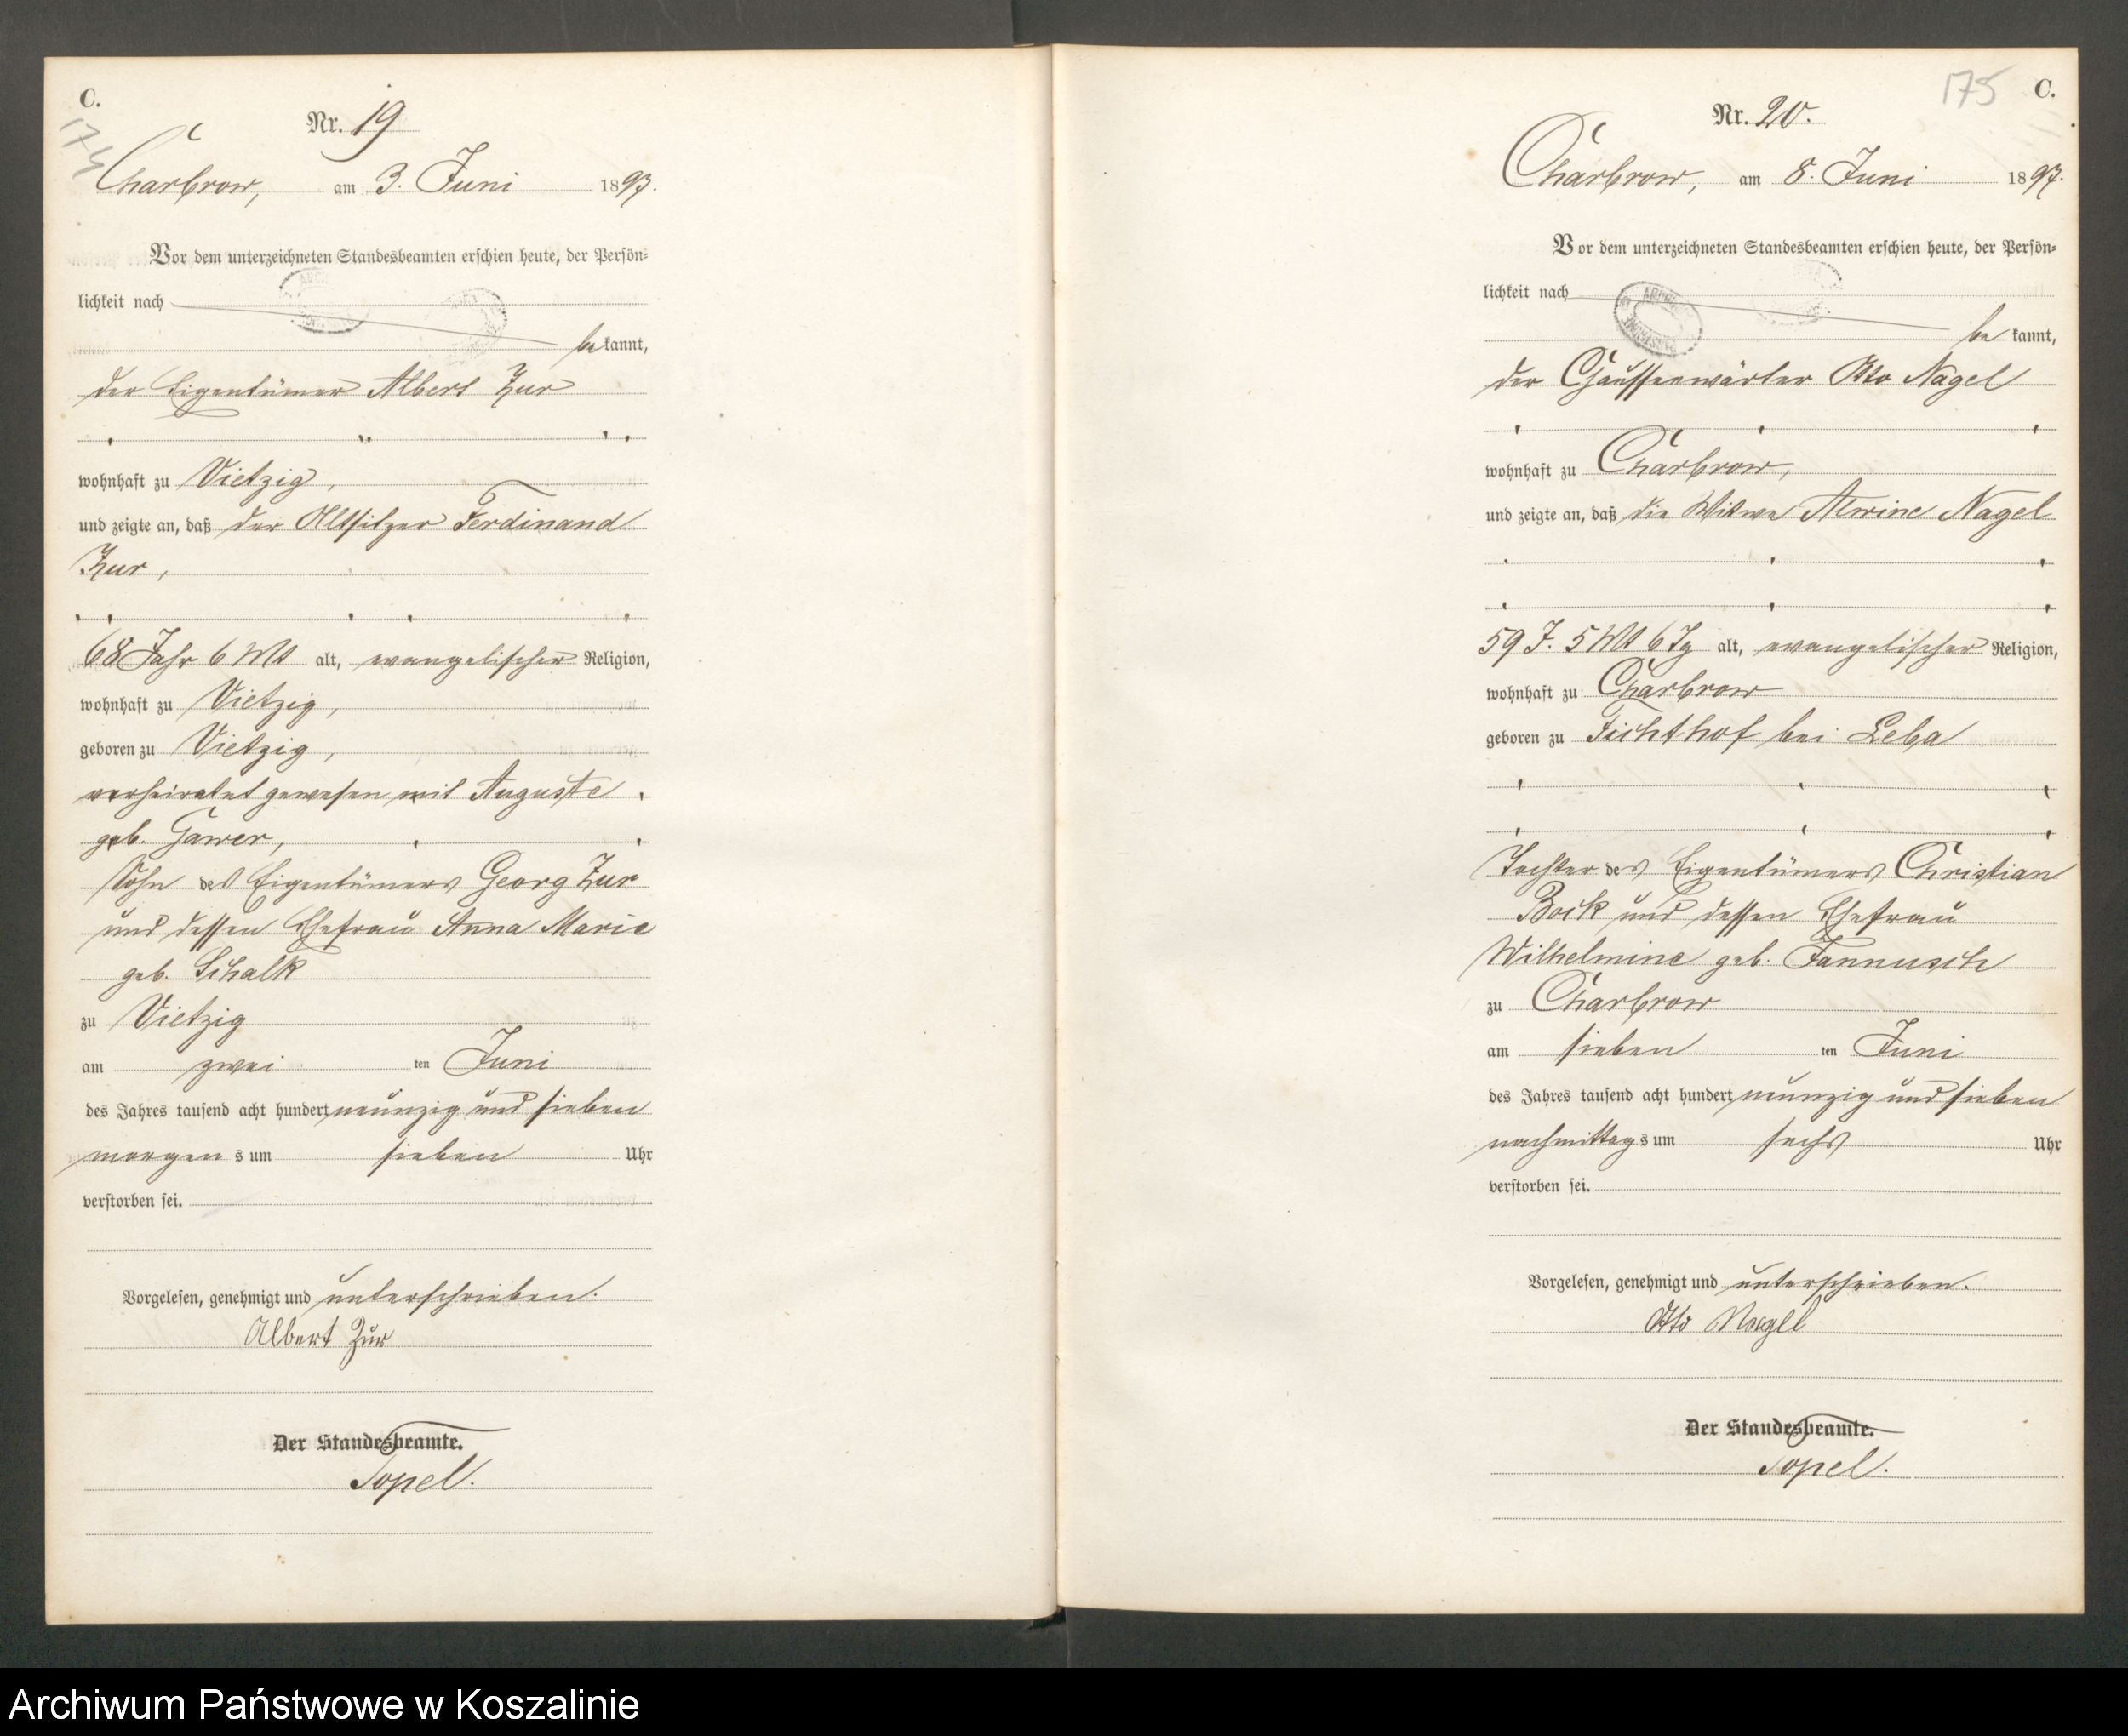 C.
174
Nr. 19
Charbrow, am 3. Juni 1897.
Vor dem unterzeichneten Standesbeamten erschien heute, der Persön-
lichkeit nach
bekannt,
der Eigentümer Albert Zur
wohnhaft zu Vietzig,
und zeigte an, daß der Altsitzer Ferdinand
Zur,
68 Jahr 6 Mt alt, evangelischer Religion,
wohnhaft zu Vietzig,
geboren zu Vietzig,
verheiratet gewesen mit Auguste
geb. Gawer,
Sohn des Eigentümers Georg Zur
und dessen Ehefrau Anna Marie
geb. Schalk
zu Vietzig
am zwei ten Juni
des Jahres tausend acht hundert neunzig und sieben
morgens um sieben Uhr
verstorben sei.
Vorgelesen, genehmigt und unterschrieben.
Albert Zur
Der Standesbeamte.
Topel.
175 C.
Nr. 20.
Charbrow, am 8. Juni 1897.
Vor dem unterzeichneten Standesbeamten erschien heute, der Persön-
lichkeit nach
bekannt,
der Chausseewärter Otto Nagel
wohnhaft zu Charbrow,
und zeigte an, daß die Witwe Alwine Nagel
59 J. 5 Mt 6 Tg alt, evangelischer Religion,
wohnhaft zu Charbrow
geboren zu Fichthof bei Leba
Tochter des Eigentümers Christian
Bock und dessen Ehefrau
Wilhelmine geb. Jannusch
zu Charbrow
am sieben ten Juni
des Jahres tausend acht hundert neunzig und sieben
nachmittags um sechs Uhr
verstorben sei.
Vorgelesen, genehmigt und unterschrieben.
Otto Nagel
Der Standesbeamte.
Topel.
Archiwum Państwowe w Koszalinie